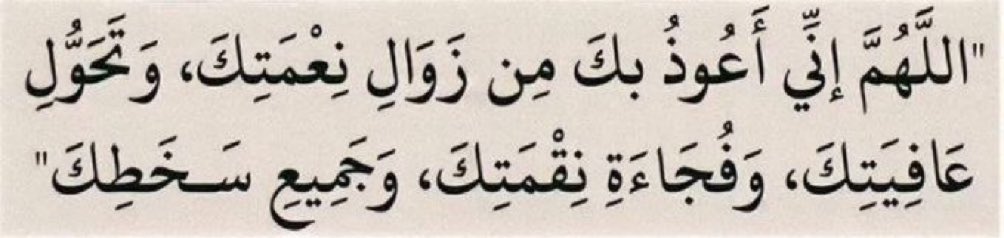 "اللَّهُمَّ إنِّي أَعُوذُ بكَ مِن زَوَالِ نِعْمَتِكَ، وَتَحَوُّلِ
عَافِيَتِكَ، وَفُجَاءَةِ نِقْمَتِكَ، وَجَمِيعِ سَـخَطِكَ"